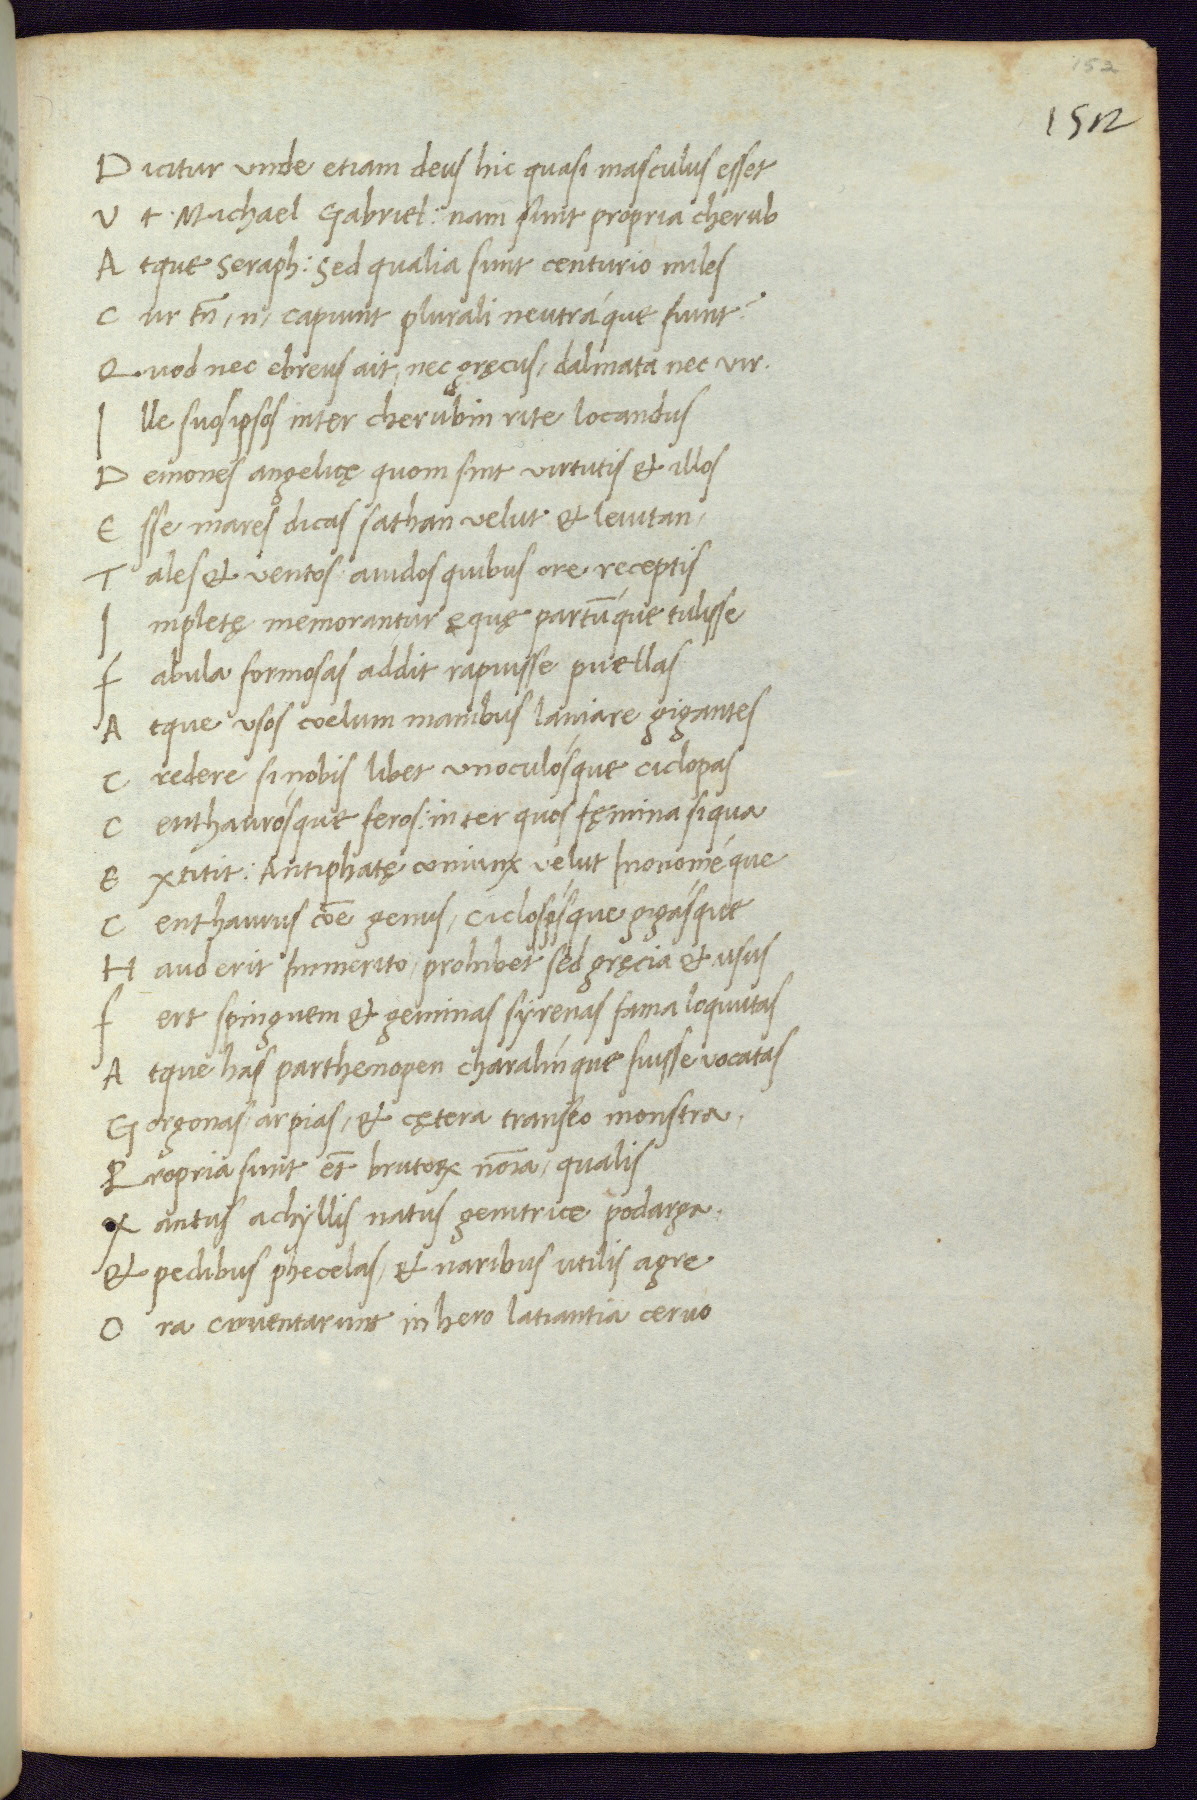 152
1512
Dicitur unde etiam deus hic quasi masculus esset
Vt Michael Gabriel: nam sunt propria cherub
Atque Seraph: sed qualia sunt centurio miles
Cur tn̄, n, capiunt plurali neutráque fiunt?
Quod nec ebreus ait, nec gręcus, dalmata nec vir.
Ille suos ipsos inter cherubin rite locandus
Demones angelicę quom sint virtutis & illos
Esse mares dicas sathan velut & leuitan,
Tales & ventos auidos quibus ore receptis
Impletę memorantur equę partūque tulisse
Fabula formosas addit rapuisse puellas
Atque usos coelum manibus laniare gigantes
Credere si nobis libet unoculósque ciclopas
Centhaurósque feros: inter quos fęmina siqua
Extitit: Antiphatę coniunx velut Inonoméque
Centhaurus cōe genus, ciclospsque gigásque
Haud erit Immerito, prohibet sed gręcia & usus
Fert spinguem & geminas syrenas fama loquutas
Atque has parthenopen charalinque fuisse vocatas
Gorgonas arpias, & cętera transeo monstra.
Propria sunt et̄ brutoꝝ nōīa, qualis
Xantus achyllis natus genitrice podarga.
& pedibus phecelas, & naribus utilis agre
Ora cruentarunt in hero latrantia ceruo